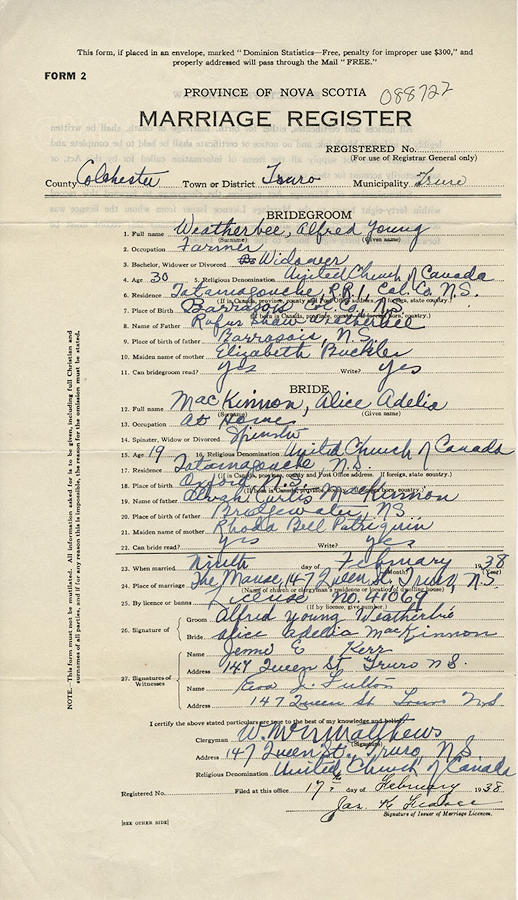 This form, if placed in an envelope, marked "Dominion Statistics—Free, penalty for improper use $300," and
properly addressed will pass through the Mail "FREE."
FORM 2
PROVINCE OF NOVA SCOTIA 088722
MARRIAGE REGISTER
REGISTERED No.
(For use of Registrar General only)
County Colchester Town or District Truro Municipality Truro
BRIDEGROOM
1. Full name Weatherbee, Alfred Young
(Surname) (Given name)
2. Occupation Farmer
3. Bachelor, Widower or Divorced Widower
4. Age 30 5. Religious Denomination United Church of Canada
6. Residence Tatamagouche, R.R.1, Col. Co. N.S.
(If in Canada, province, county and Post Office address. If foreign, state country.)
7. Place of Birth Col. Co. N.S.
8. Name of Father Rufus Weatherbee
9. Place of birth of father N.S.
10. Maiden name of mother Elizabeth Buckler
11. Can bridegroom read? yes Write? yes
BRIDE
12. Full name MacKinnon, Alice Adelia
(Surname) (Given name)
13. Occupation At Home
14. Spinster, Widow or Divorced Spinster
15. Age 19 16. Religious Denomination United Church of Canada
17. Residence Tatamagouche N.S.
(If in Canada, province, county and Post Office address. If foreign, state country.)
18. Place of Birth Oxford N.S.
19. Name of father Curtis MacKinnon
20. Place of birth of father Bridgewater, N.S.
21. Maiden name of mother Rhoda Bell Patriquin
22. Can bride read? yes Write? yes
23. When married Ninth day of February 1938
(Month)
24. Place of marriage The Manse, 147 Queen St, Truro, N.S.
(Name of church or clergyman's residence or location of dwelling house)
25. By licence or banns License No. 41061
(If by licence, give number.)
26. Signature of Groom Alfred Young Weatherbie
Bride Alice Adelia MacKinnon
27. Signatures of Witnesses
Name Jennie E Kerr
Address 147 Queen St Truro N.S.
Name J. Fulton
Address 147 Queen St Truro N.S.
I certify the above stated particulars are true to the best of my knowledge and belief.
Clergyman W. Matthews
(Signature)
Address 147 Queen St., Truro, N.S.
Religious Denomination United Church of Canada
Registered No. Filed at this office 17th day of February 1938
Jas. K.
Signature of Issuer of Marriage Licences.
[SEE OTHER SIDE]
NOTE.—This form must not be mutilated. All information asked for is to be given, including full Christian and
surnames of all parties, and if for any reason this is impossible, the reason for the omission must be stated.